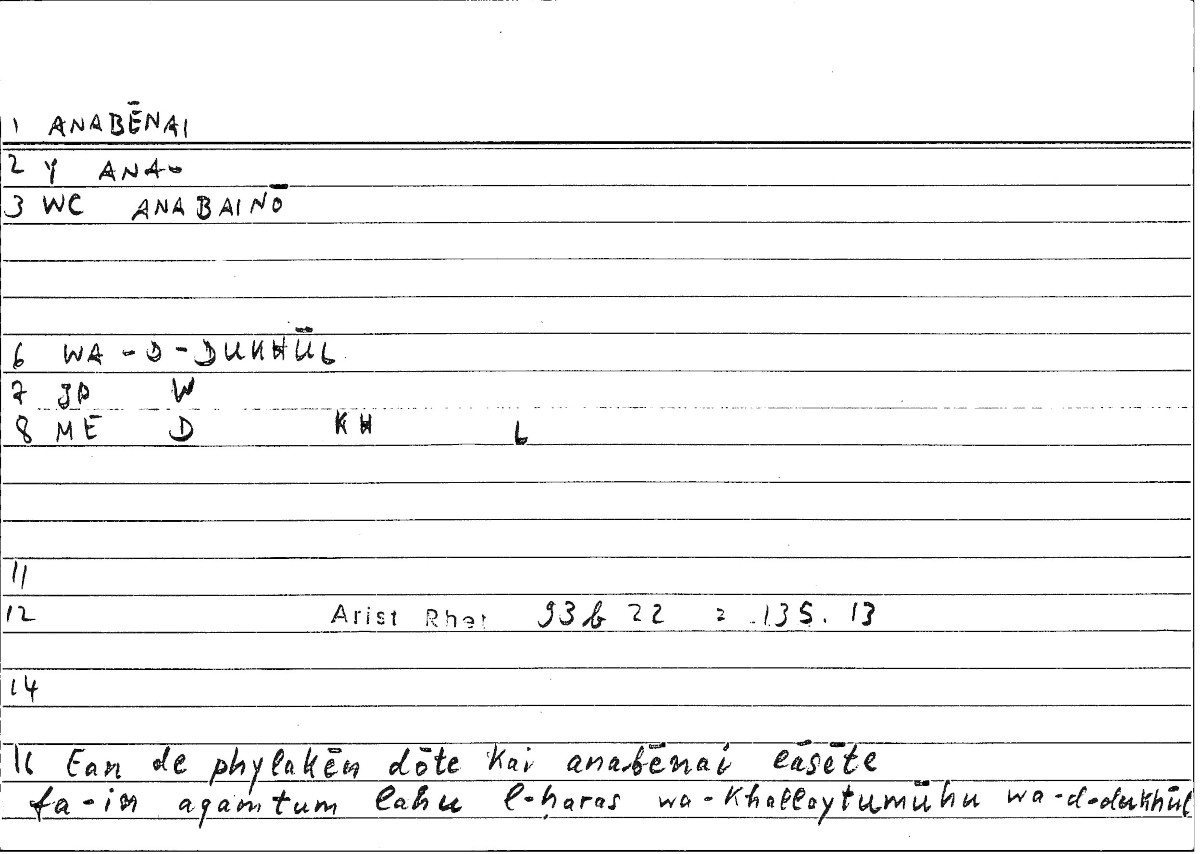 1 ANABĒNAI
2 Y ANA-
3 WC ANABAINŌ
6 WA-D-DUKHŪL
7 JD W
8 ME D KH L
11
12 Arist Rhet 93b 22 = 135.13
14
16 Ean de phylakēn dōte kai anabēnai eāsēte
fa-in aqamtum lahu l-ḥaras wa-khallaytumūhu wa-d-dukhūl